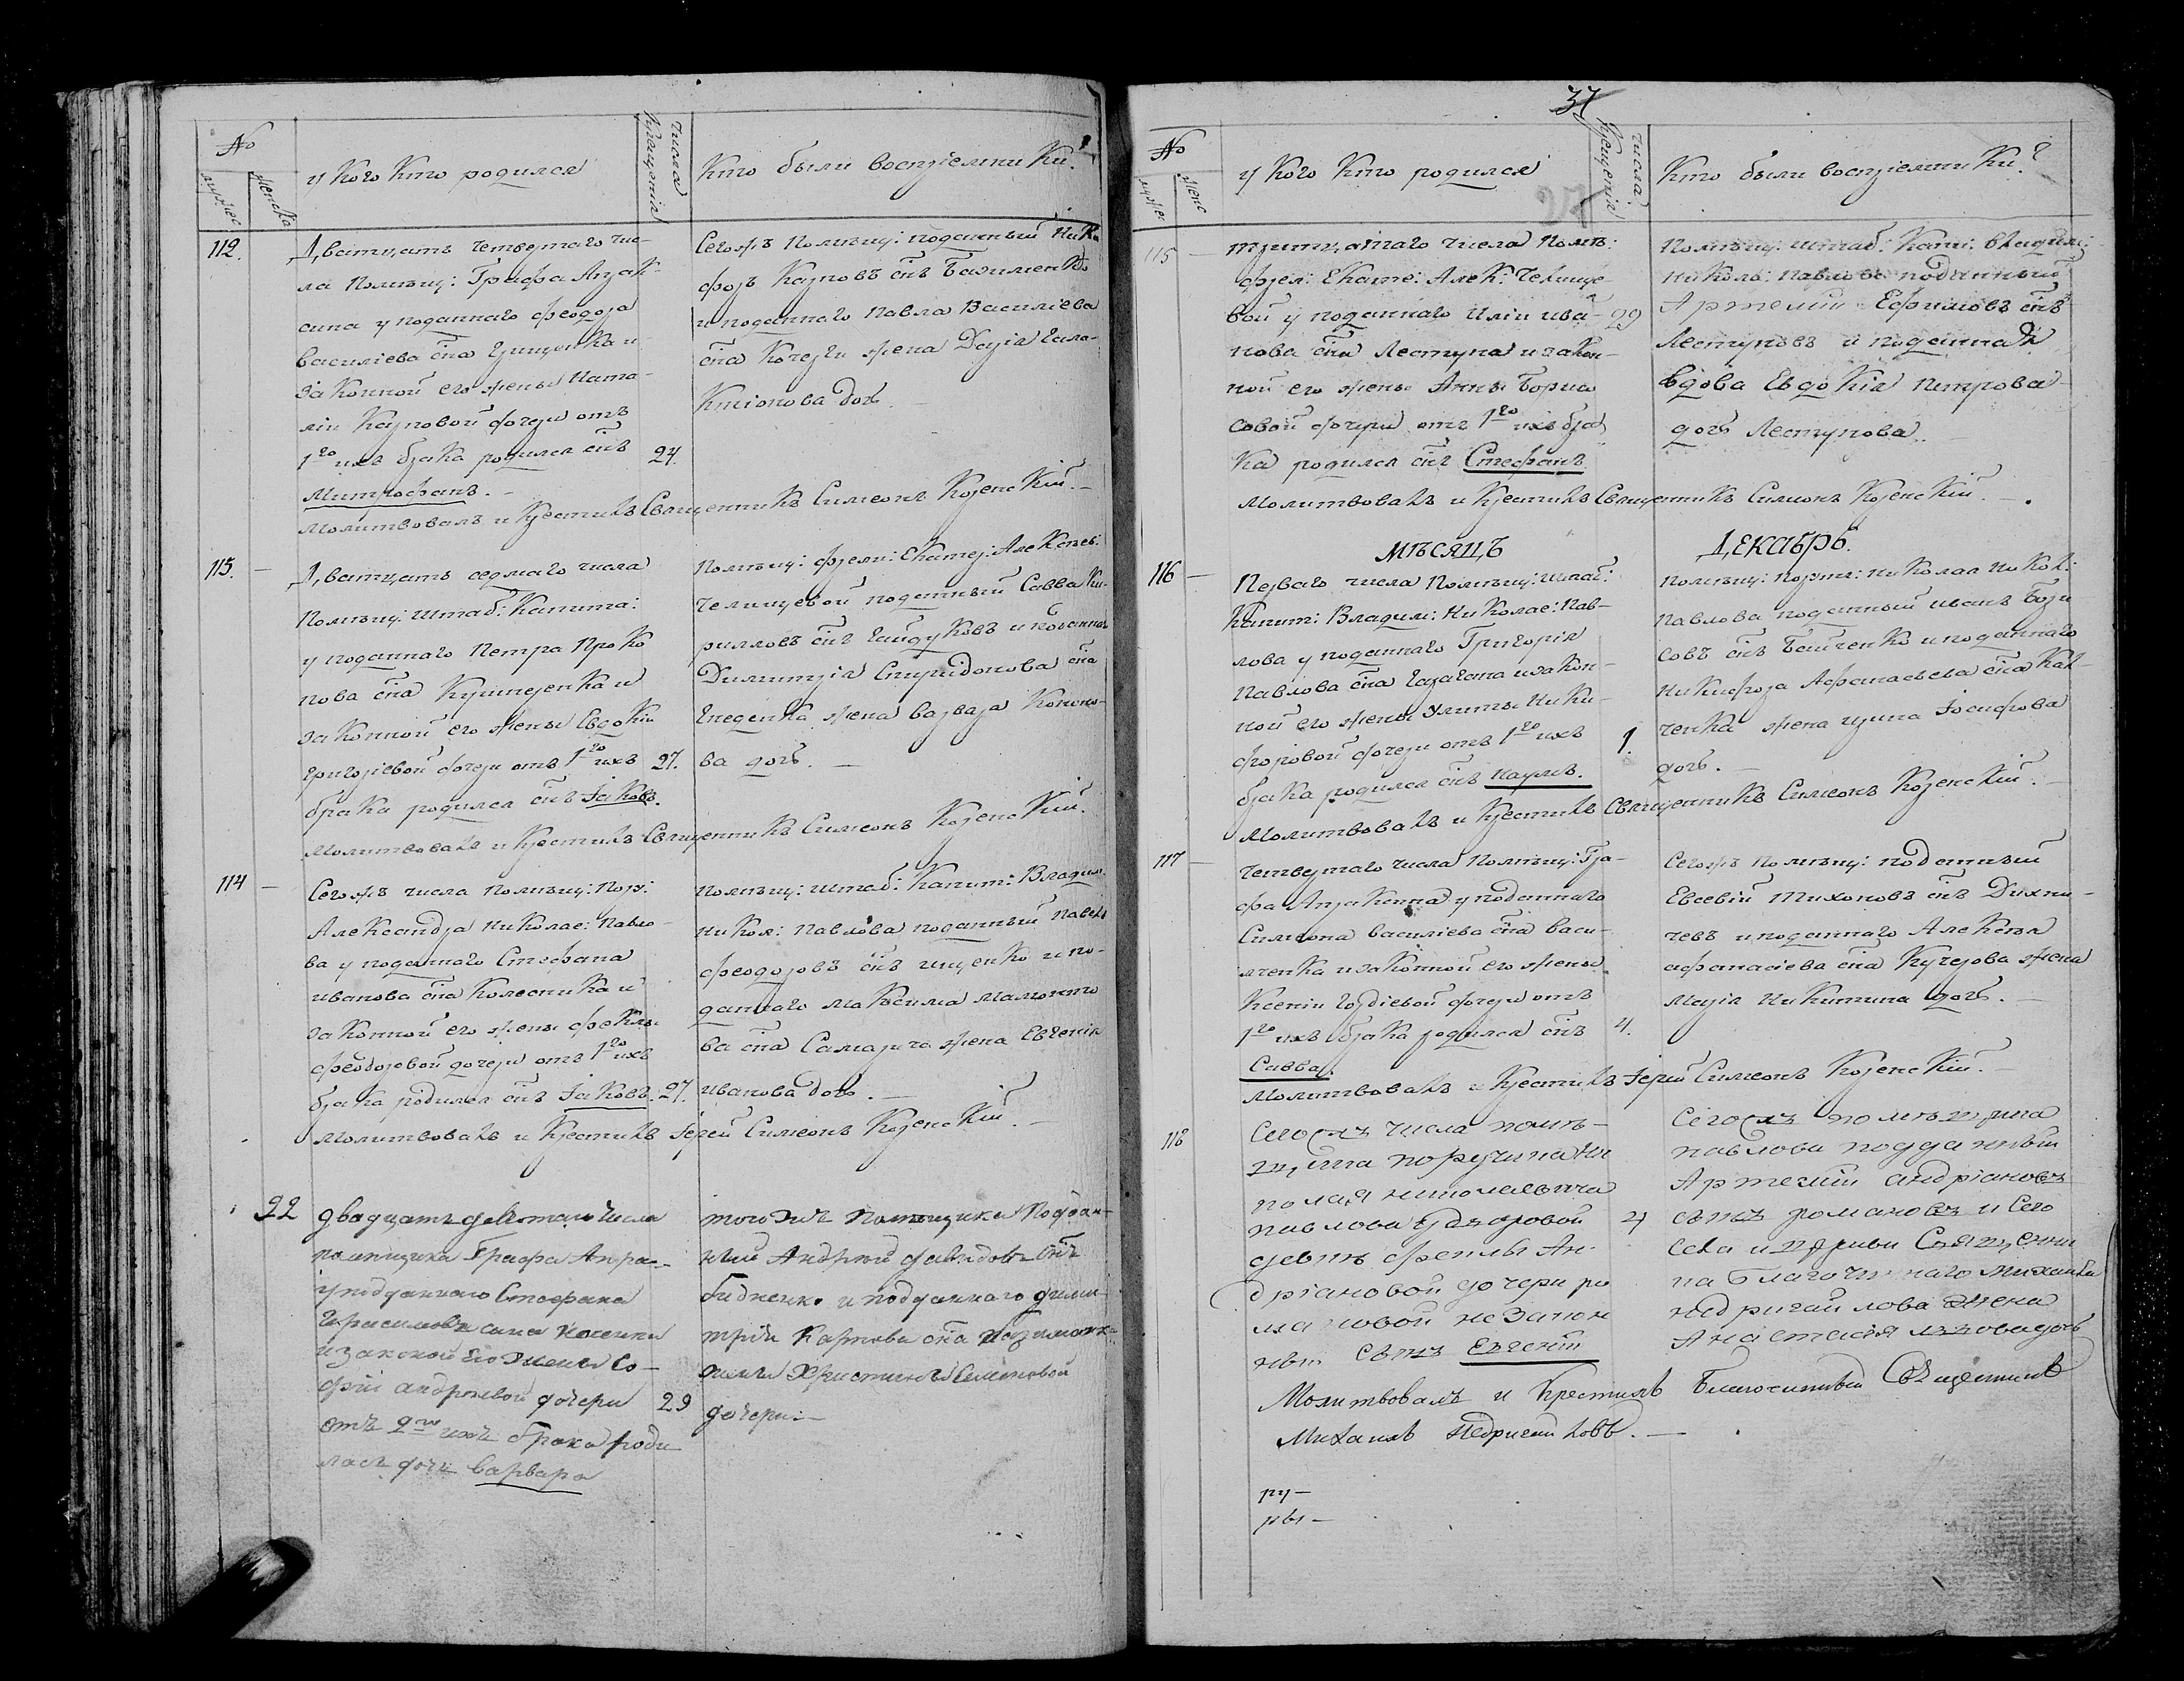 №
мужес
женска
у кого кто родился
числа крещенія
Кто были воспріемники?
112.
Дватцать четвертаго чис-
ла помѣщ: Графа Апрак-
сина у подданнаго Феодора
Василіева сна Грищенка и
законной его жены Ната-
ліи Карповой дочери отъ
1го ихъ брака родился снъ
24.
Митрофанъ.
Сегожъ помѣщ: подданный Ники-
форъ Карповъ снъ
и подданнаго Павла Василіева
сна Кочерги жена Дарія Гала-
ктіонова дочь.
Молитвовалъ и крестилъ Священникъ Симеонъ Козенскій.
113.
Дватцать седмаго числа
Помѣщ: Штаб: Капита:
у подданнаго Петра Проко
пова сна и
законной его жены Евдокіи
Григоріевой дочери отъ 1го ихъ
27.
брака родился снъ Іаковъ.
Помѣщ: фрели: Екатер: Алексѣев:
Челищевой подданный Савва Ки-
рилловъ снъ Гайдуковъ и подданнаго
Димитрія Спиридонова сна
жена Варвара Конono-
ва дочь.
Молитвовалъ и крестилъ Священникъ Симеонъ Козенскій.
114
Сегожъ числа помѣщ: Пор:
Александра Николае: Павло-
ва у подданнаго Стефана
Иванова сна Колесника и
законной его жены Феклы
Феодоровой дочери отъ 1го ихъ
брака родился снъ Іаковъ.
27.
Помѣщ: штаб: Капит: Владим:
Никол: Павлова подданный Павелъ
Феодоровъ снъ Ищенко и по-
даннаго Максима Мамонто
ва сна жена Евгенія
Иванова дочь.
Молитвовалъ и крестилъ Іерей Симеонъ Козенскій.
22
двадцать девятаго числа
помѣщика Графа Апра-
у подданнаго Стефана
Герасимова сына
и законой его жены Со-
фіи Андреевой дочери
29
отъ 2го ихъ брака роди
лась дочь Варвара
того жъ помѣщика поддан-
ный Андрей Давидовъ снъ
Гидненко и подданнаго Дими-
трія Карпова сна
жены Христины Симоновой
дочери.
37
27
№
мужес
женс
у кого кто родился
числа крещенія
Кто были воспріемники?
115
тритцатаго числа помѣ:
фрел: Екате: Алек: Челище-
вой у подданнаго Иліи Ива-
29
нова сна Леступа и закон-
ной его жены Анны Бори
совой дочери отъ 1го ихъ бра
ка родился снъ Стефанъ
Помѣщ: штаб: Капи: Владим:
Николь: Павлова подданный
Артемій Ефимовъ снъ
Леступовъ и подданная
вдова Евдокія Петрова
дочь Леступова.
Молитвовалъ и крестилъ Священникъ Симеонъ Козенскій.
Мѣсяцъ Декабрь.
116
Перваго числа помѣщ: штаб:
Капит: Владим: Николае: Пав-
лова у подданнаго Григорія
Павлова сна и закон-
ной его жены Улиты Ники-
форовой дочери отъ 1го ихъ
1.
брака родился снъ Наумъ.
Помѣщ: порут: Николая Никол:
Павлова подданный Иванъ Бори
совъ снъ и подданнаго
Никифора Афанасьева сна
ченка жена Ирина Іосифова
дочь.
Молитвовалъ и крестилъ Священникъ Симеонъ Козенскій.
117
Четвертаго числа помѣщ: Гра-
фа Апраксина у подданнаго
Симеона Василіева сна Васи-
ленка и законной его жены
Ксеніи Гордіевой дочери отъ
1го ихъ брака родился снъ
4.
Савва.
Сегожъ помѣщ: подданный
Евсевій Тихоновъ снъ Дихни-
чевъ и подданнаго Алексѣя
Афанасіева сна Кучерова жена
Марія Никитина дочь.
Молитвовалъ и крестилъ Іерей Симеонъ Козенскій.
118
Сегожъ числа помѣ-
щика поручика Ни
колая Николаевича
Павлова у дворовой
4
девки Феклы Ан-
дріановой дочери ро
мановой незакон
ный сынъ Евгеній
Сегожъ помѣщика
Павлова подданный
Артемій Андріановъ
сынъ Романовъ и сего
села и церкви Священни
ка Благочиннаго Михаила
Недригайлова жена
Анастасія Львова дочь
Молитвовалъ и крестилъ Благочинный Священникъ
Михаилъ Недригайловъ.
ру-
ры-